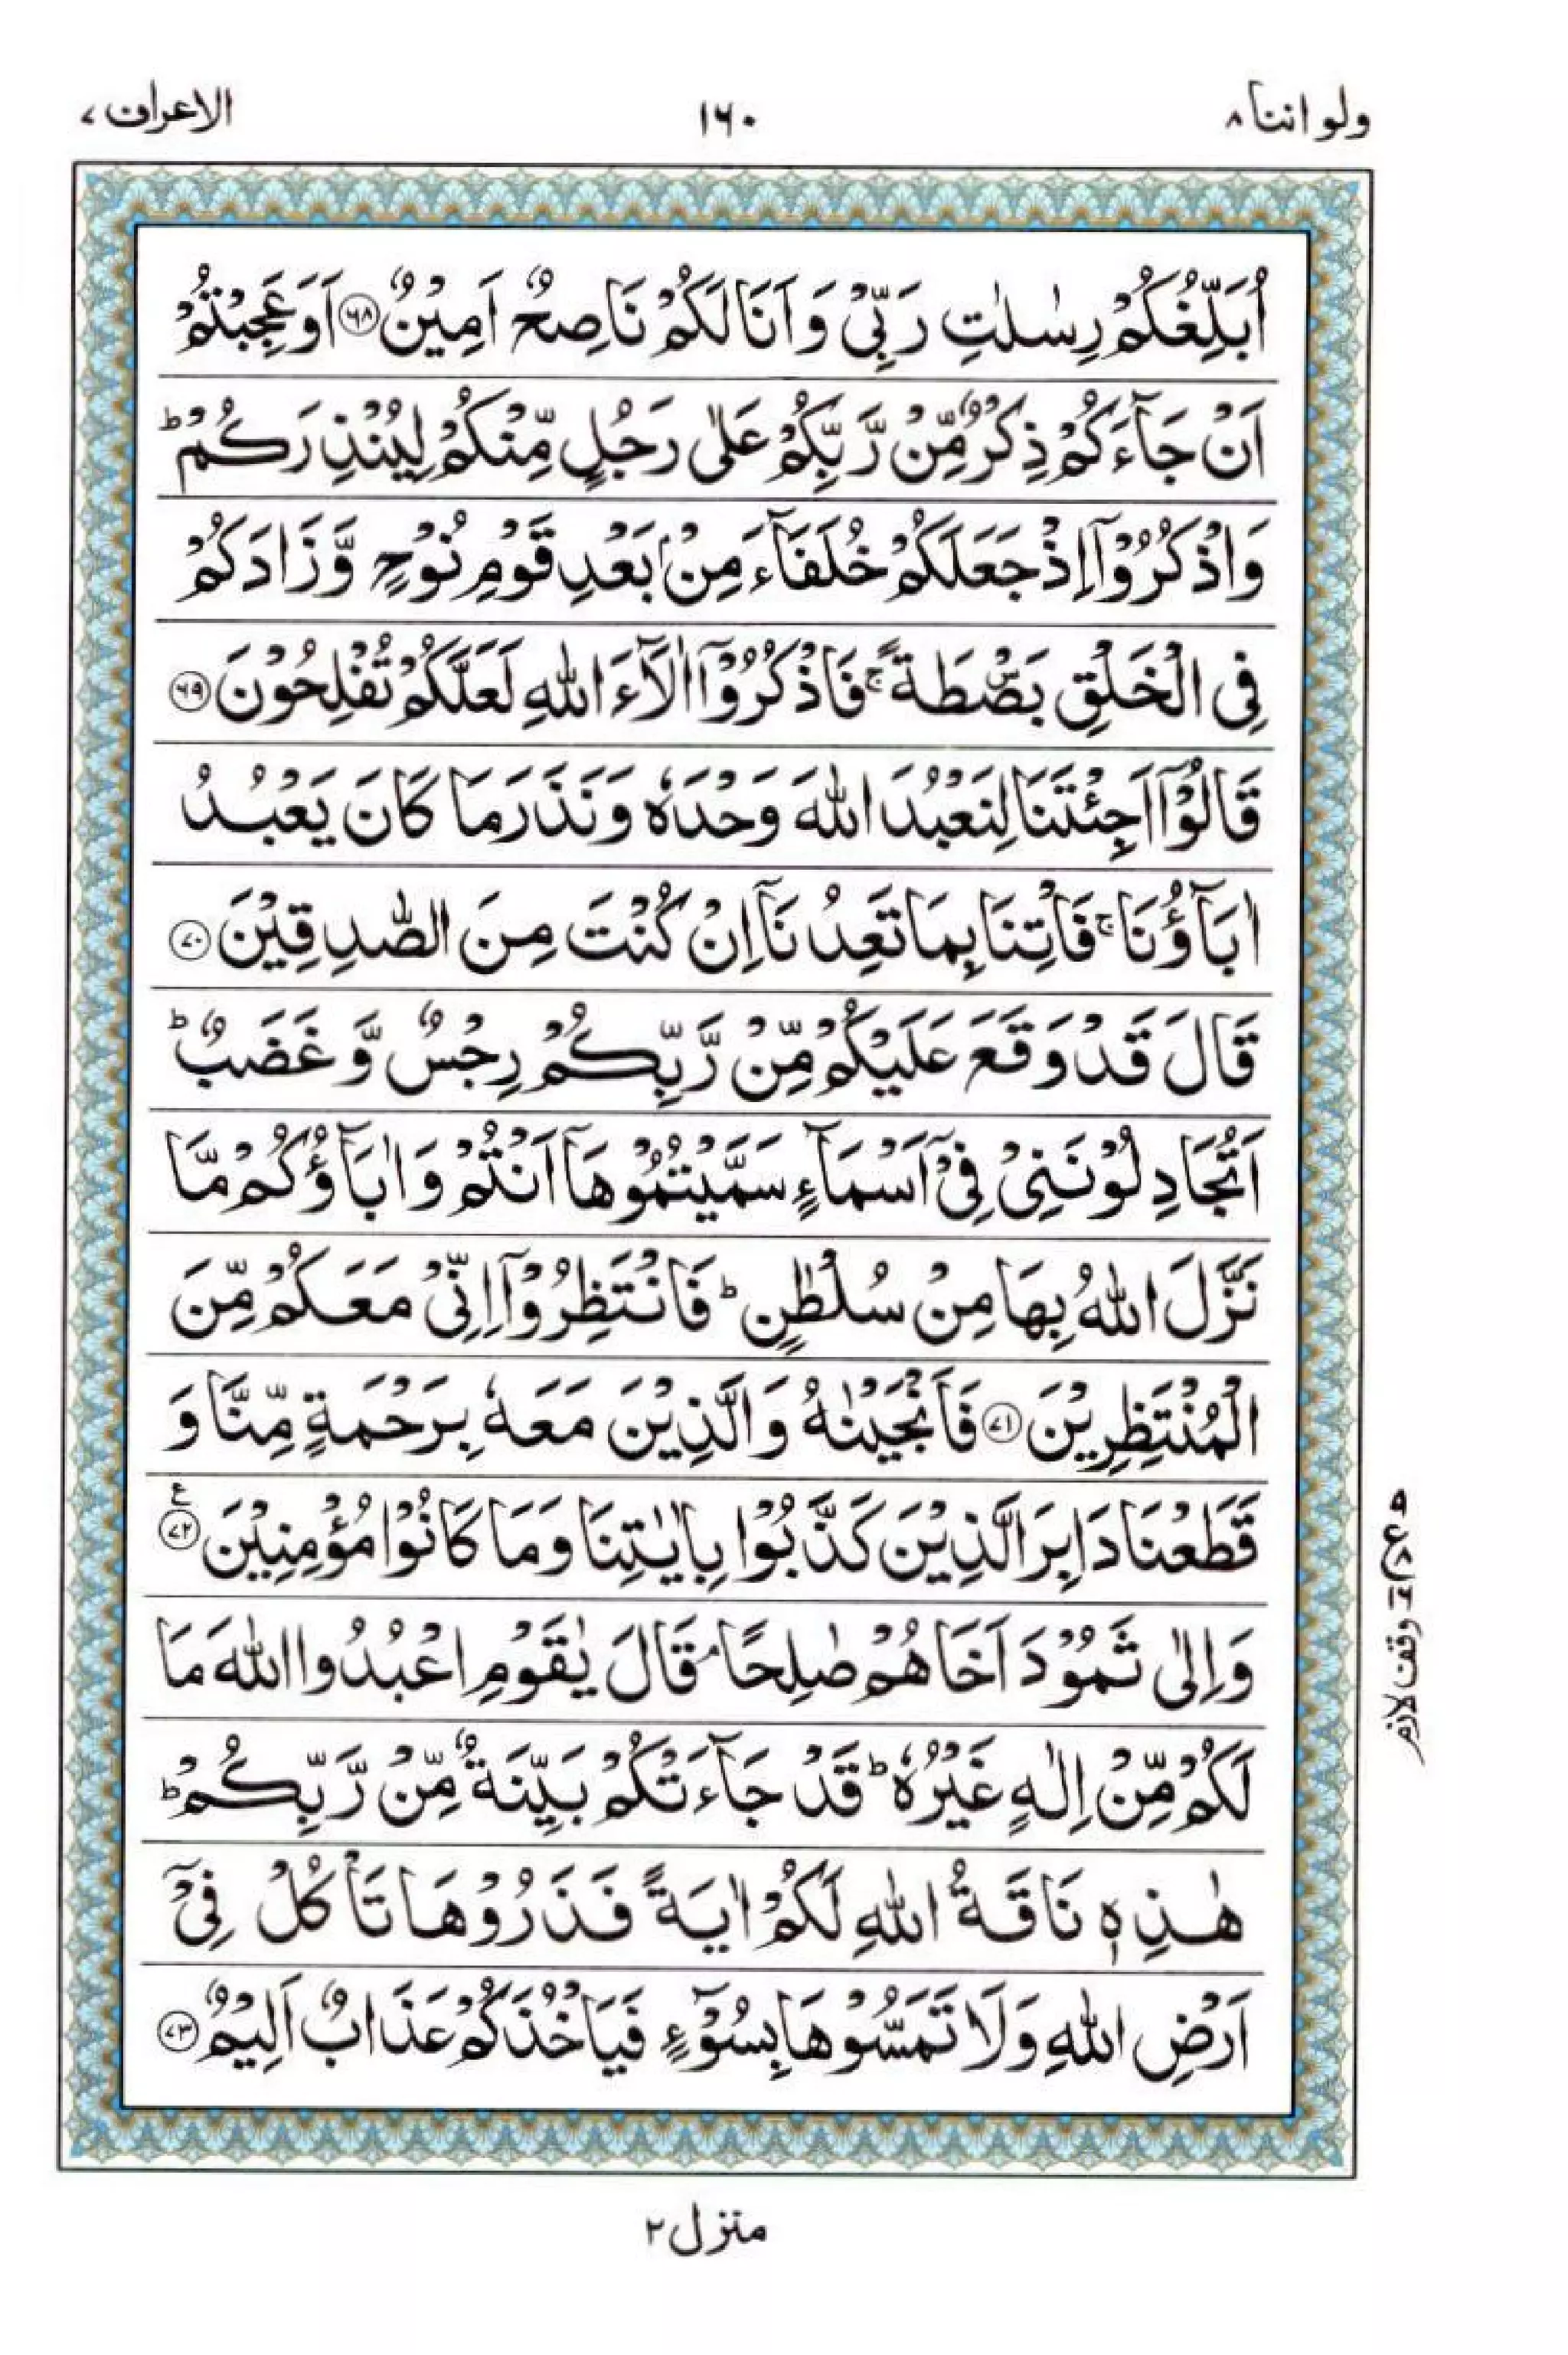 ولو اننا ۸
۱۶۰
الاعراف ۷
اُبَلِّغُكُمْ رِسٰلٰتِ رَبِّیْ وَ اَنَا لَكُمْ نَاصِحٌ اَمِیْنٌ ﴿۶۸﴾ اَوَعَجِبْتُمْ
اَنْ جَآءَكُمْ ذِكْرٌ مِّنْ رَّبِّكُمْ عَلٰی رَجُلٍ مِّنْكُمْ لِیُنْذِرَكُمْ ؕ
وَاذْكُرُوْۤا اِذْ جَعَلَكُمْ خُلَفَآءَ مِنْۢ بَعْدِ قَوْمِ نُوْحٍ وَّزَادَكُمْ
فِی الْخَلْقِ بَصْۜطَةً ۚ فَاذْكُرُوْۤا اٰلَآءَ اللّٰهِ لَعَلَّكُمْ تُفْلِحُوْنَ ﴿۶۹﴾
قَالُوْۤا اَجِئْتَنَا لِنَعْبُدَ اللّٰهَ وَحْدَهٗ وَنَذَرَ مَا كَانَ یَعْبُدُ
اٰبَآؤُنَا ۚ فَاْتِنَا بِمَا تَعِدُنَاۤ اِنْ كُنْتَ مِنَ الصّٰدِقِیْنَ ﴿۷۰﴾
قَالَ قَدْ وَقَعَ عَلَیْكُمْ مِّنْ رَّبِّكُمْ رِجْسٌ وَّ غَضَبٌ ؕ
اَتُجَادِلُوْنَنِیْ فِیْۤ اَسْمَآءٍ سَمَّیْتُمُوْهَاۤ اَنْتُمْ وَ اٰبَآؤُكُمْ مَّا
نَزَّلَ اللّٰهُ بِهَا مِنْ سُلْطٰنٍ ؕ فَانْتَظِرُوْۤا اِنِّیْ مَعَكُمْ مِّنَ
الْمُنْتَظِرِیْنَ ﴿۷۱﴾ فَاَنْجَیْنٰهُ وَالَّذِیْنَ مَعَهٗ بِرَحْمَةٍ مِّنَّا وَ
قَطَعْنَا دَابِرَ الَّذِیْنَ كَذَّبُوْا بِاٰیٰتِنَا وَمَا كَانُوْا مُؤْمِنِیْنَ ﴿۷۲﴾ ع
وَاِلٰی ثَمُوْدَ اَخَاهُمْ صٰلِحًا ۘ قَالَ یٰقَوْمِ اعْبُدُوا اللّٰهَ مَا
لَكُمْ مِّنْ اِلٰهٍ غَیْرُهٗ ؕ قَدْ جَآءَتْكُمْ بَیِّنَةٌ مِّنْ رَّبِّكُمْ ؕ
هٰذِهٖ نَاقَةُ اللّٰهِ لَكُمْ اٰیَةً فَذَرُوْهَا تَاْكُلْ فِیْۤ
اَرْضِ اللّٰهِ وَلَا تَمَسُّوْهَا بِسُوْٓءٍ فَیَاْخُذَكُمْ عَذَابٌ اَلِیْمٌ ﴿۷۳﴾
وقف لازم
منزل ۲